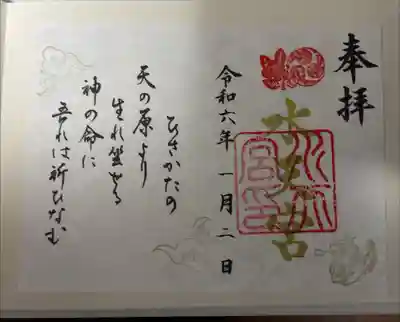 奉拝
水天宮
令和六年 一月二日
ひさかたの
天の原より
生れ坐せる
神の命に
吾れは祈ひなむ